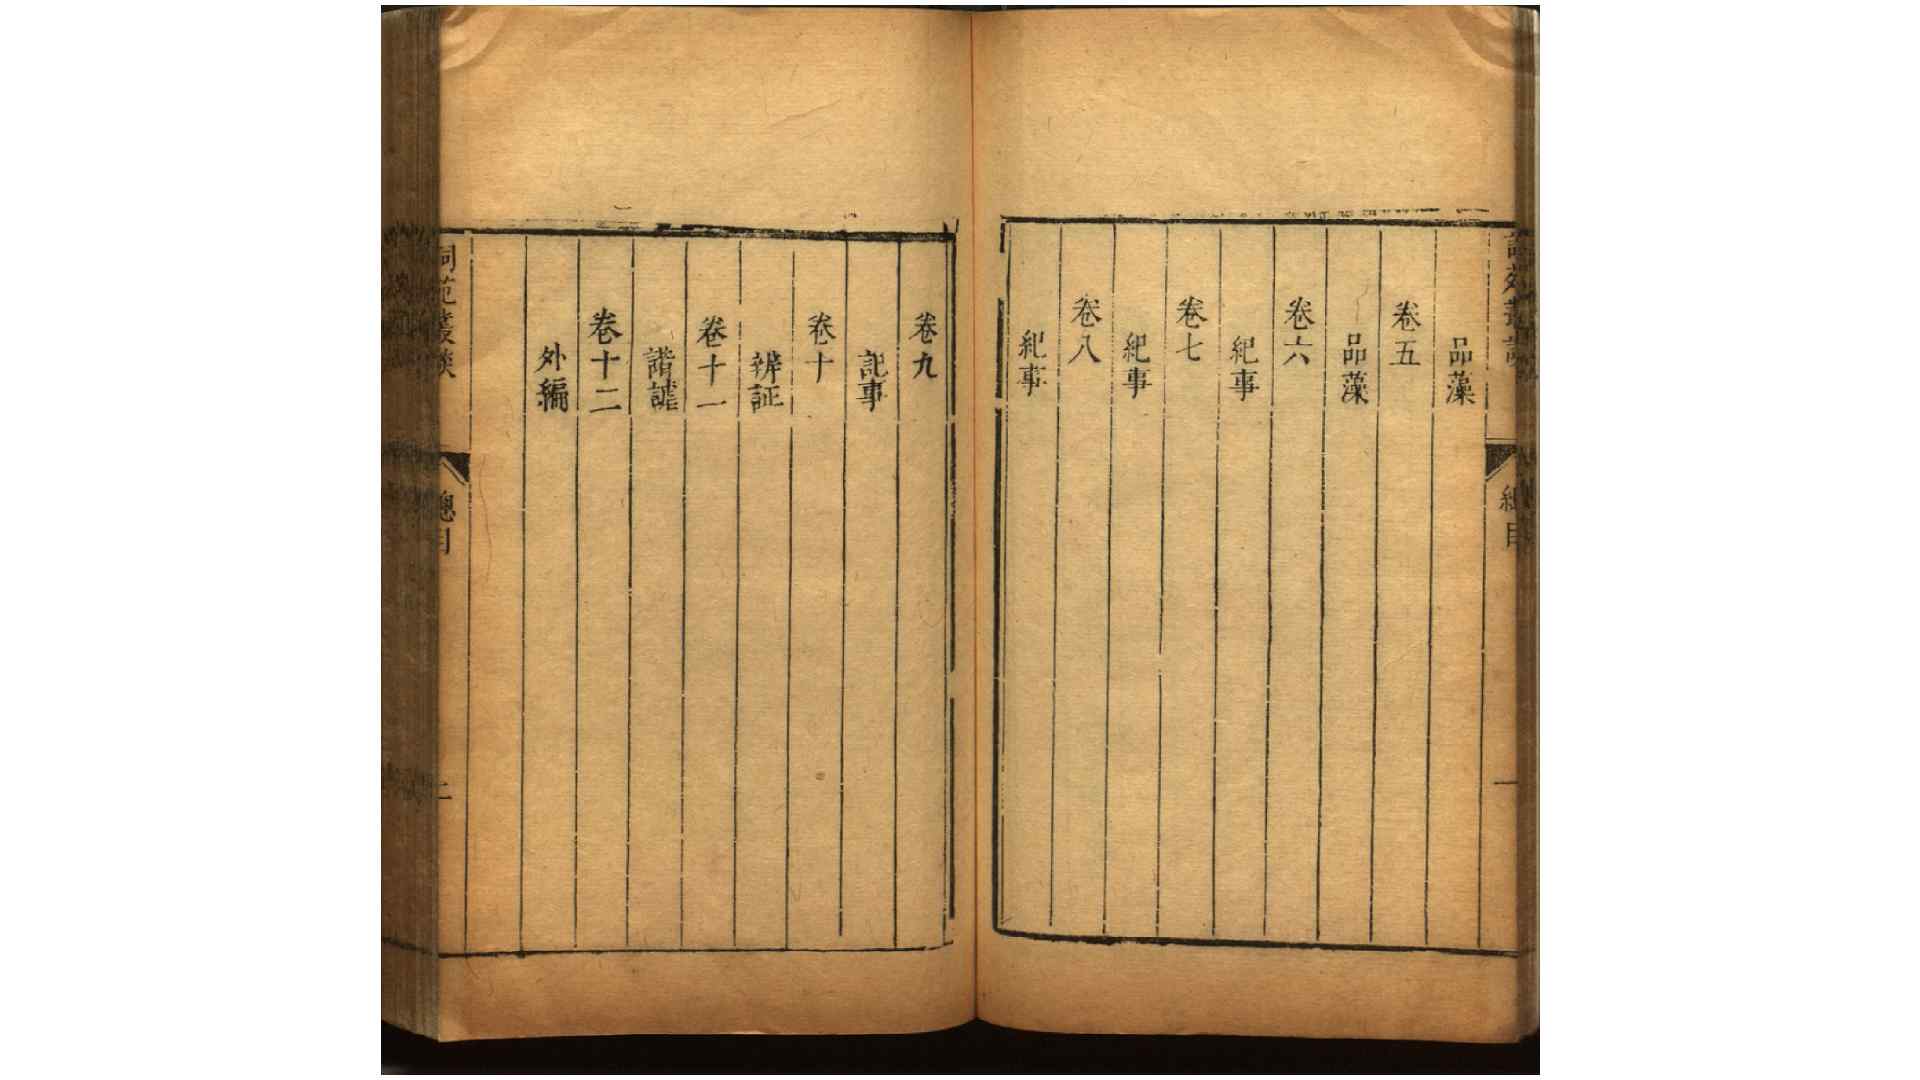 品藻
卷五
品藻
卷六
紀事
卷七
紀事
卷八
紀事
卷九
記事
卷十
辨証
卷十一
諧謔
卷十二
外編
詞苑叢談
總目
二